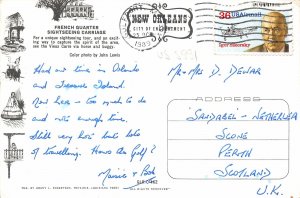 FRENCH QUARTER
SIGHTSEEING CARRIAGE
For a unique sightseeing tour, and an excit-
ing way to capture the spirit of the area,
see the Vieux Carre via horse and buggy.
Color photo by John Lewis
NEW ORLEANS
CITY OF ENJOYMENT
1989
36 USAirmail
Igor Sikorsky
Had our time in Orlando
and Treasure Island.
Now here – too much to do
and not enough time.
Still very hot but lots
of travelling. Hows the Golf?
Mr + Mrs D. DEWAR
ADDRESS
SANDABEL - NETHERLEA
SCONE
PERTH
SCOTLAND
U.K.